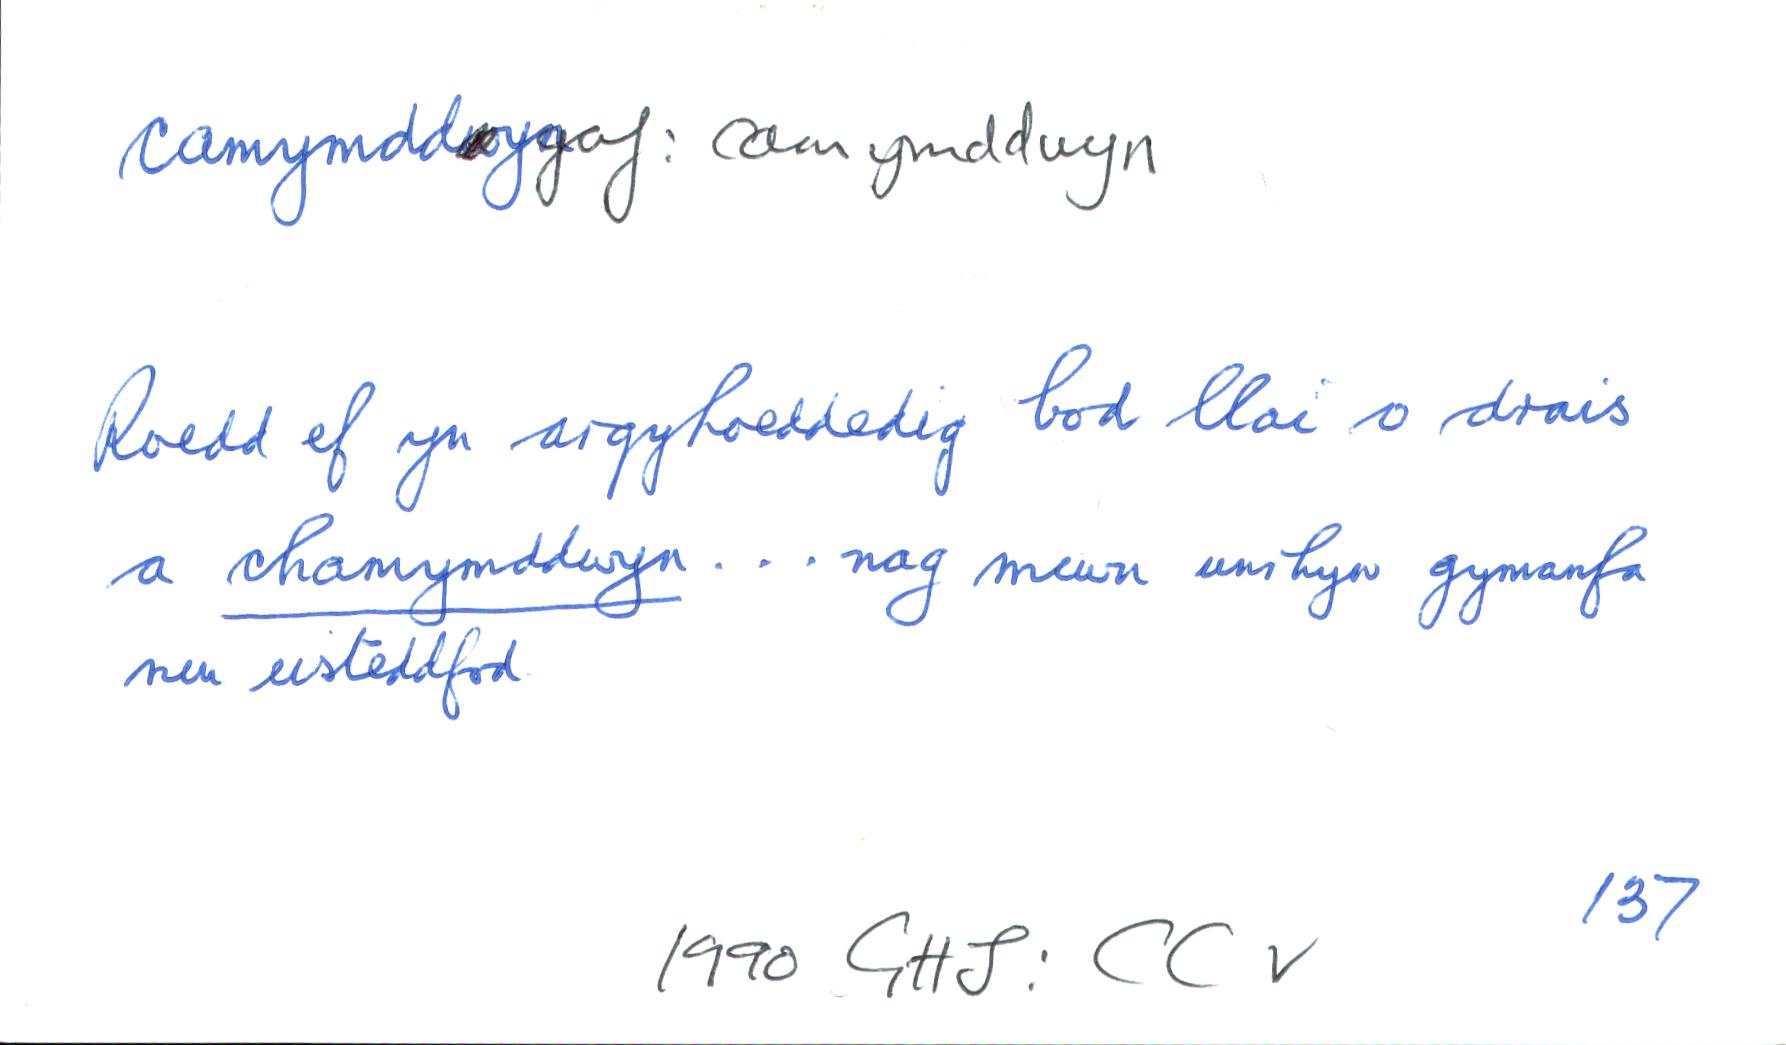 camymddygaf: camymddwyn
Roedd ef yn argyhoeddedig bod llai o drais
a chamymddwyn . . . nag mewn unrhyw gymanfa
neu eisteddfod
137
1990 GHJ: CC v